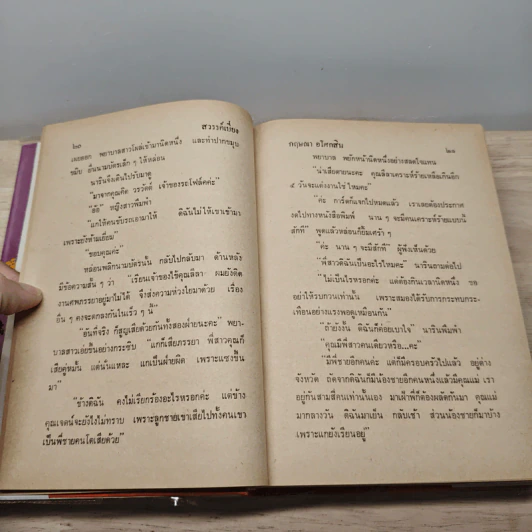 ๒๐ สวรรค์เบี่ยง
เผยออก พยาบาลสาวโผล่เข้ามานิดหนึ่ง และทำปากขมุบ
ขมิบ ยื่นนามบัตรเล็ก ๆ ให้หล่อน
นารินจึงเดินไปรับมาดู
"มาจากคุณคิด วรวัตที่ เจ้าของรถโฟล์คค่ะ"
"อ้อ" หญิงสาวพึมพำ
"แกให้คนขับรถเอามาให้ ดิฉันไม่ให้เขาเข้ามา
เพราะยังห้ามเยี่ยม"
"ขอบคุณค่ะ"
หล่อนพลิกนามบัตรนั้น กลับไปกลับมา ด้านหลัง
มีข้อความสั้น ๆ ว่า "เรียนเจ้าของไข้คุณลีลา ผมยังติด
งานศพภรรยาอยู่มาไม่ได้ จึงส่งความห่วงใยมาด้วย เรื่อง
อื่น ๆ คงจะตกลงกันในเร็ว ๆ นี้"
"อันที่จริง ก็สูญเสียด้วยกันทั้งสองฝ่ายนะคะ" พยา-
บาลสาวเอ่ยขึ้นอย่างกระซิบ "แกก็เสียภรรยา พี่สาวคุณก็
เสียคู่หมั้น แต่นั่นแหละ แกเป็นฝ่ายผิด เพราะแซงขึ้น
มา"
"ข้างดิฉัน คงไม่เรียกร้องอะไรหรอกค่ะ แต่ข้าง
คุณเจตน์จะยังไงไม่ทราบ เพราะลูกชายเขาเสียไปทั้งคนเขา
เป็นพี่ชายคนโตเสียด้วย"
กฤษณา อโศกสิน ๒๑
พยาบาล พยักหน้านิดหนึ่งอย่างสลดใจแทน
"น่าเสียดายนะคะ คุณลีลาเคราะห์ร้ายเหลือเกินอีก
๕ วันจะแต่งงานใช่ ไหมคะ"
"ค่ะ การ์ดก็แจกไปหมดแล้ว เราเลยต้องประกาศ
งดไปทางหนังสือพิมพ์ นาน ๆ จะมีคนเคราะห์ร้ายแบบนี้
สักที" พูดแล้วหล่อนก็ยิ้มเศร้า ๆ
"ค่ะ นาน ๆ จะมีสักที" ผู้พึ่งเห็นด้วย
"พี่สาวดิฉันเป็นอะไรไหมคะ" นารินถามต่อไป
"ไม่เป็นไรหรอกค่ะ แต่ต้องกินเวลานิดหนึ่ง ขอ
อย่าให้รบกวนเท่านั้น เพราะสมองได้รับการกระทบกระ-
เทือนอย่างแรงพอดูเหมือนกัน"
"ถ้ายังงั้น ดิฉันก็ค่อยเบาใจ" นารินพึมพำ
"คุณมีพี่สาวคนเดียวหรือ...คะ"
"มีพี่ชายอีกคนค่ะ แต่ก็มีครอบครัวไปแล้ว อยู่ต่าง
จังหวัด ถัดจากดิฉันก็มีน้องชายอีกคนหนึ่งแล้วมีคุณแม่ เรา
อยู่กันสามสี่คนเท่านั้นเอง มาเฝ้าพี่ก็ต้องผลัดกันมา คุณแม่
มากลางวัน ดิฉันมาเย็น กลับเช้า ส่วนน้องชายก็มาบ้าง
เพราะแกยังเรียนอยู่"